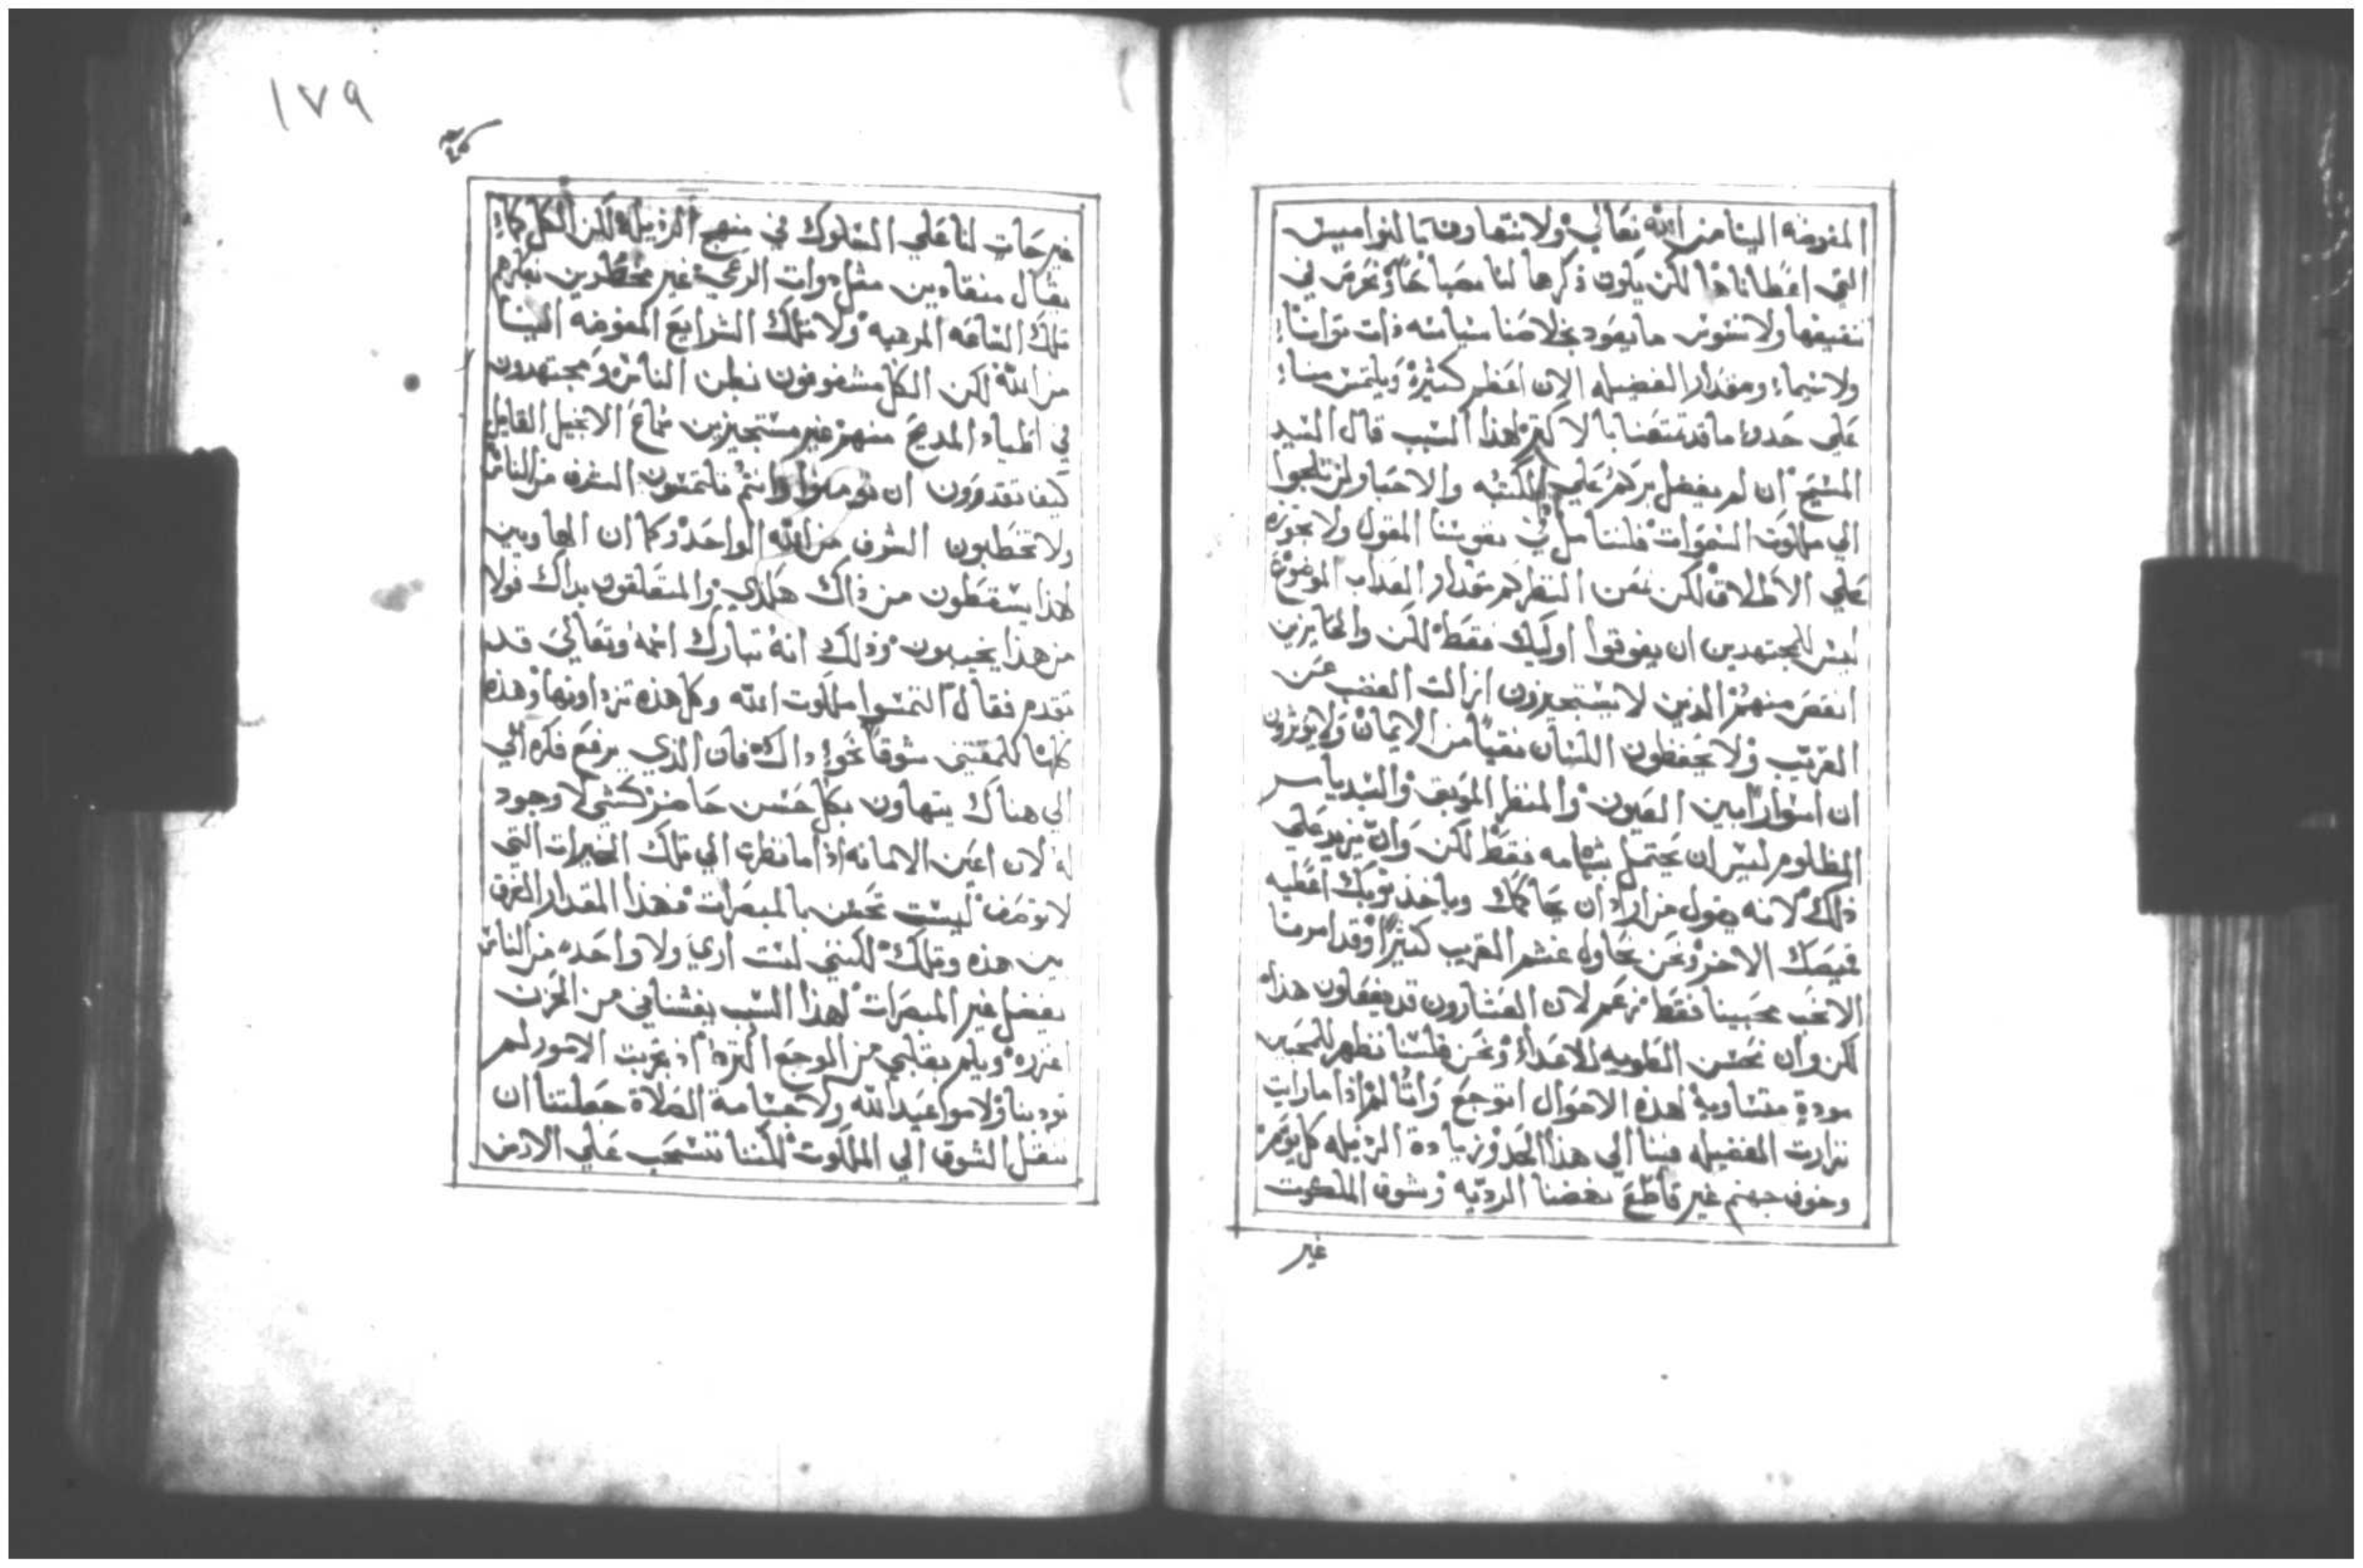 المفوضه الينا من الله تعالي ولا نتهاون بالنواميس
التي اعطانا هالكن يكون ذكرها لنا مصباحًا ونحرص في
ولا سيما ومقدار الفضيله الان اعظم كثيرة ويلتمس منا
علي حدوا ما قد تمتعنا بالاكثر لهذا السبب قال السيد
المسيح ان لم يفضل بركم علي الكتبه والاحبار لن تلجوا
الي ملكوت السموات فلنتامل في نفوسنا المقول ولا نجوزه
علي الاطلاق لكن نمعن النظر كم مقدار العذاب الموضوع
ليس للمجتهدين ان يفوقوا اوليك فقط لكن والحايزين
انقص منهم الذين لا يستجيزون ازالت الغضب عن
القريب ولا يحفظون اللسان نقيًا من الايمان ولا يوثرون
ان اسوارًا بين العيون والمنظر الموبق والسيد يامر
المظلوم ليس ان يحتمل بشهامه فقط لكن وان يزيد علي
ذلك لانه يقول من اراد ان يحاكمك وياخذ ثوبك اعطيه
قميصك الاخر ونحن نحاول غشم القريب كثيرًا وقد امرنا
الا نحب محبينا فقط زعم لان العشارون قد يفعلون هذا
لكن وان نحسن الطويه للاعداء ونحن فلسنا نظهر للمحبين
مودة متساوية لهذه الاحوال اتوجع واتالم اذا ما رايت
نزارت الفضيله فينا الي هذا الحد وزيادة الرذيله كل يوم
وخوف جهنم غير قاطع نهضنا الرديه وشوق الملكوت
غير
١٧٩
غير حاث لنا علي السلوك في منهج الرذيله لكن الكل كما
يقال منقادين مثل ذوات الرعي غير مخطرين بفكرهم
تلك الساعه المرهبه ولا تلك الشرايع المفوضه الينا
من الله لكن الكل مشغوفون بظن الناس ومجتهدون
في اطياد المديح منهم غير مستجيزين سماع الانجيل القايل
كيف تقدرون ان تومنوا وانتم تلتمسون الشرف من الناس
ولا تخطبون الشرف من الله الواحد وكما ان الهاوين
لهذا يسقطون من ذاك هكذي والمتعلقون بذاك فولا
من هذا يخيبون وذلك انه تبارك اسمه وتعالي قد
تقدم فقال التمسوا ملكوت الله وكل هذه تزدادونها وهذه
الي هناك يتهاون بكل حسن حاضر كشي لا وجود
له لان اعين الامانه اذا ما نظرت الي تلك الخيرات التي
لا توصف ليست تحسن بالمبصرات فهذا المقدار الفرق
بين هذه وتلك لكنني لست اري ولا واحده من الناس
يفضل غير المبصرات لهذا السبب يغشاني من الحزن
اغزره ويلم بقلبي من الوجع اكثره اذ تجربت الامور لم
تودبنا ولا مواعيد الله ولا جسامة الصلاة جعلتنا ان
نقبل الشوق الي الملكوت لكننا نتسحب علي الارض